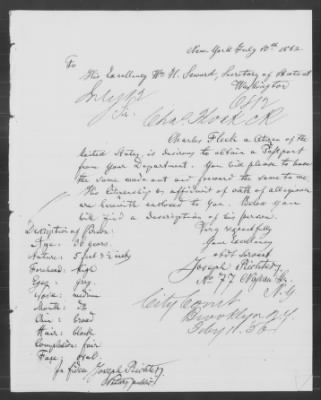 New York July 18th 1862
To
His Excellency Wm H. Seward, Secretary of State at
Washington
July 62
Chas Fleck
Charles Fleck a Citizen of the
United States, is desirous to obtain a Passport
from your Department. You will please to have
the same made out and forward the same to me
His Citizenship & affidavit of oath of allegiance
are herewith enclosed to you. Below you
will find a description of his person.
Very respectfully
Your Excellency
obdt servant
Joseph
No 77 Nassau St.
N.Y.
Description of Person:
Age: 30 years.
Stature: 5 feet 3 1/2 inch
Forehead: high
Eyes: grey.
Nose: medium
Mouth: do
Chin: broad
Hair: black
Complexion: fair
Face: oval.
City Court
Brooklyn N.Y.
Joseph
Notary public